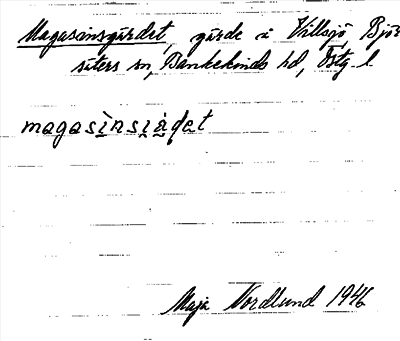 Magasinsgärdet, gärde i Villsjö, Björ-
säters sn, Bankekinds hd, Östg. l.
Maja Nordlund 1946